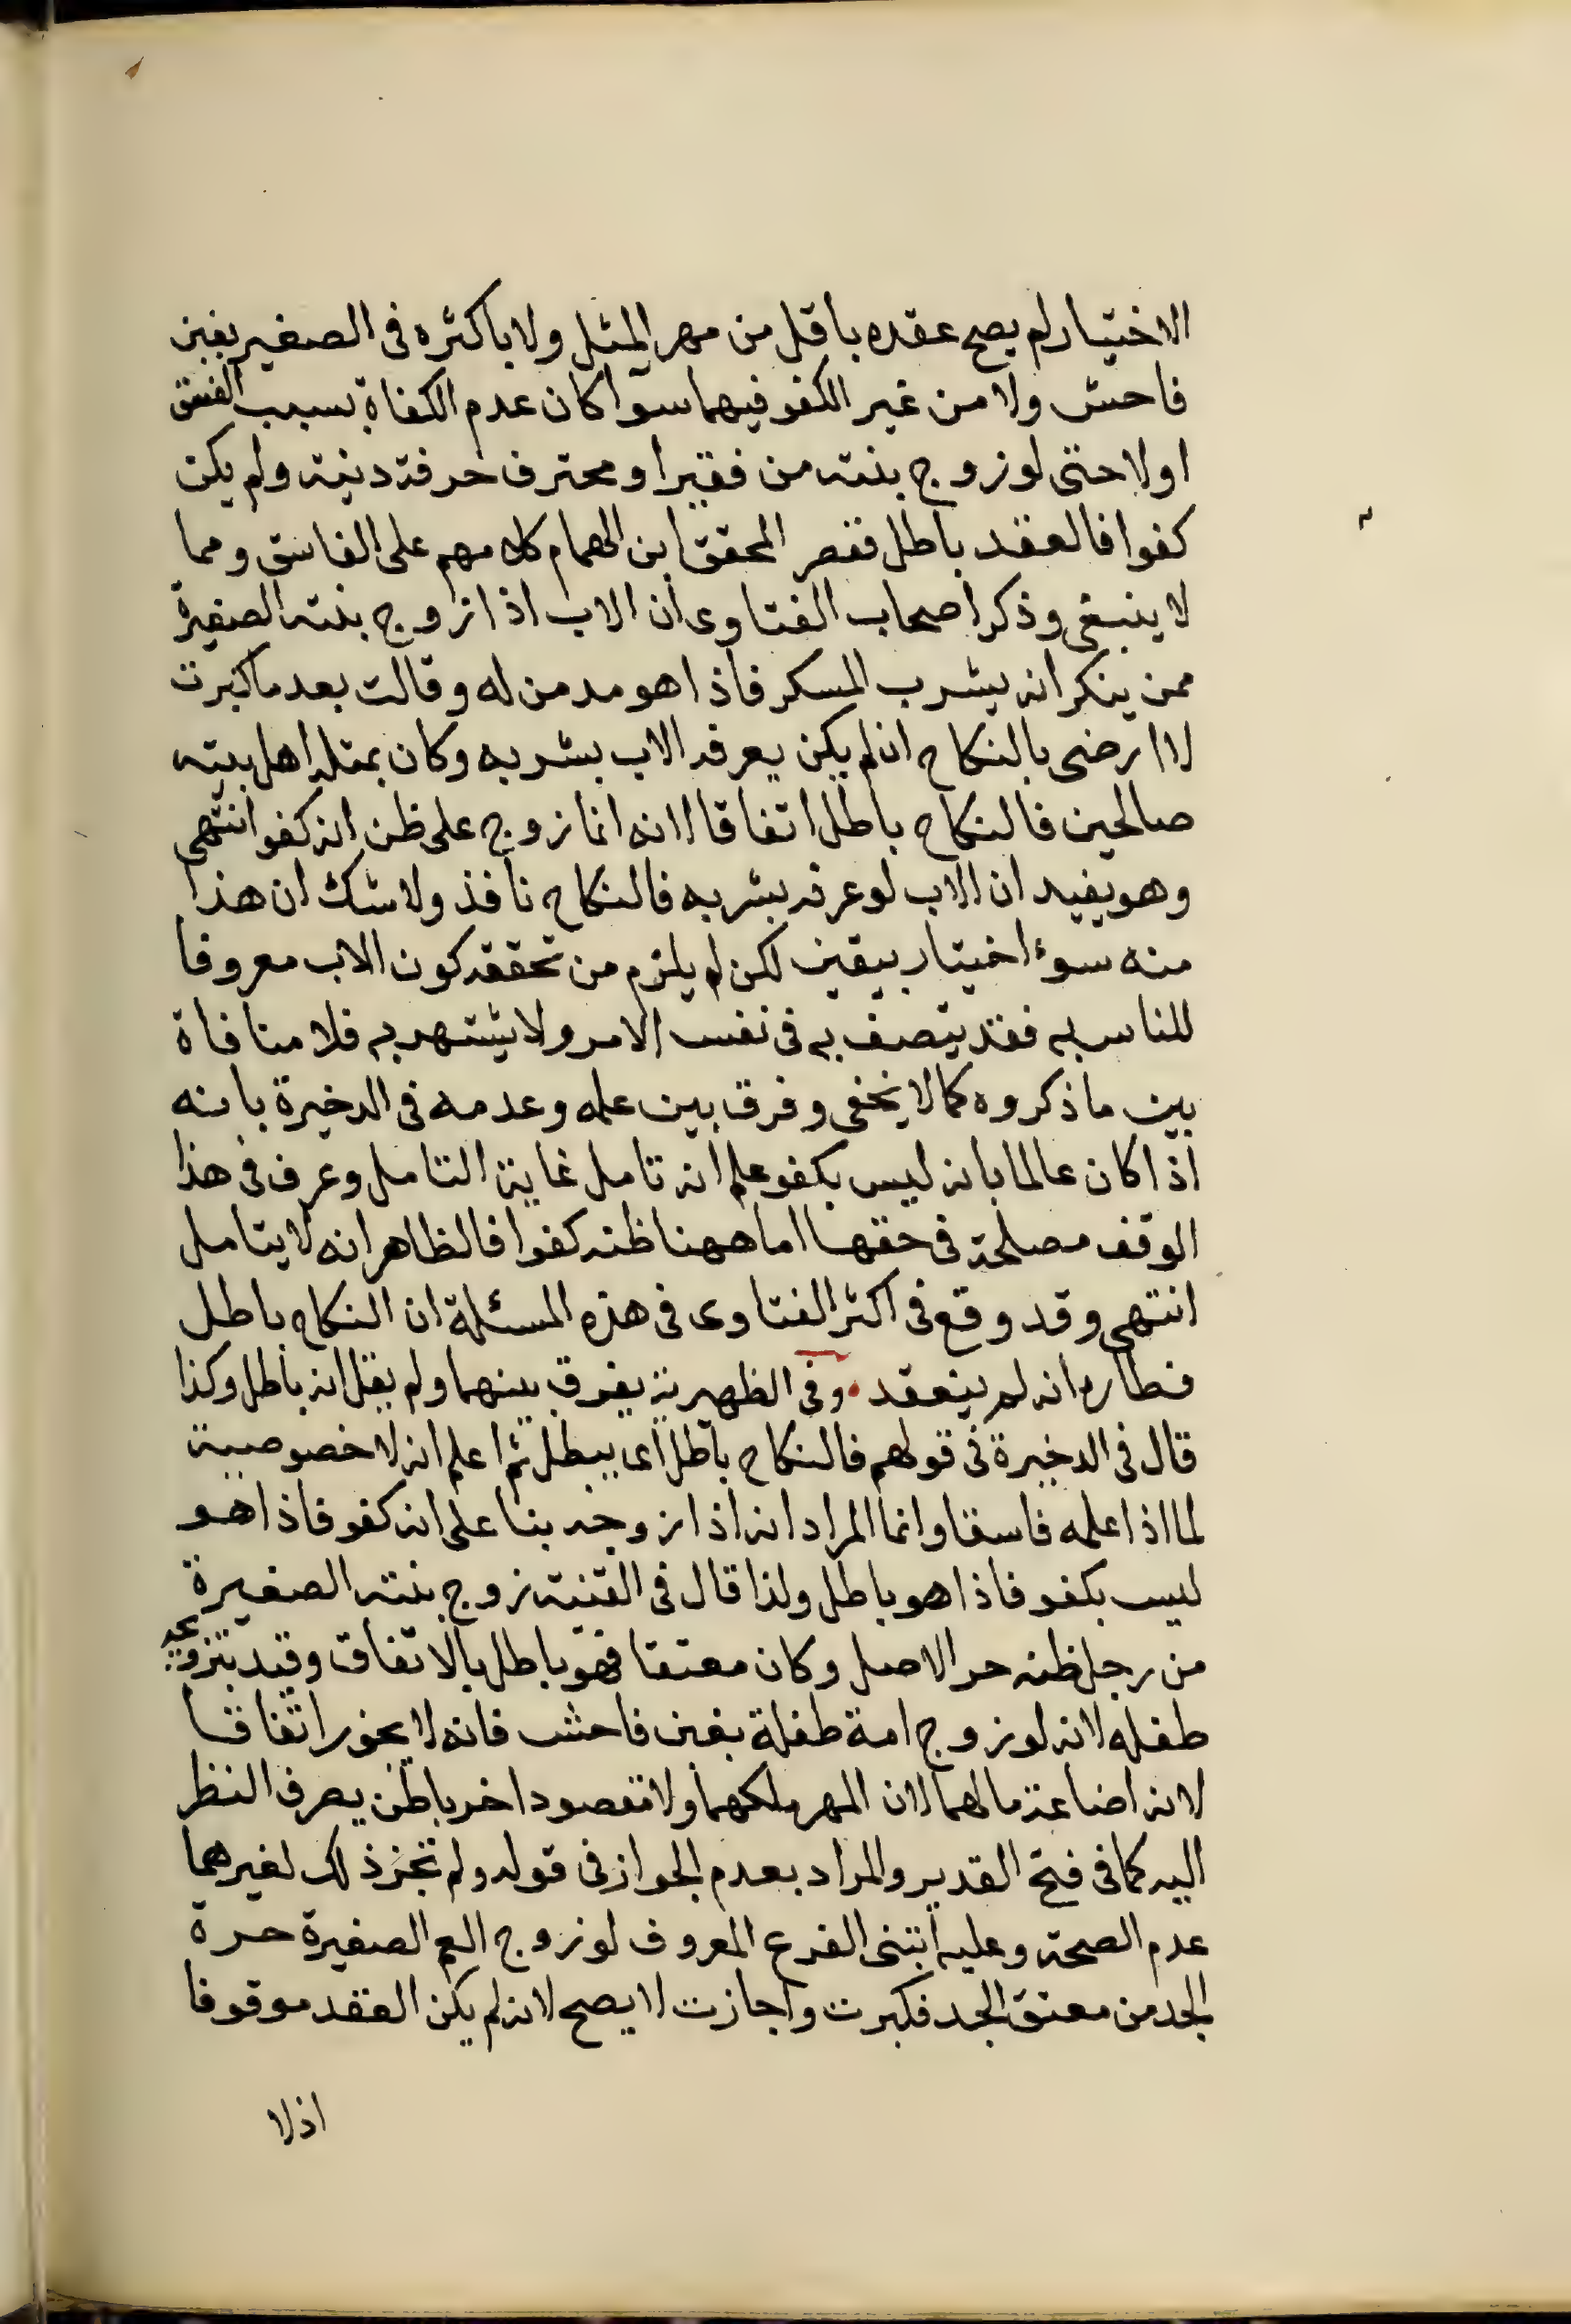 الاختيار لم يصح عقده باقل من مهر المثل ولا باكثره فى الصغير بغبن
فاحش ولا من غير الكفو فيهما سوآ كان عدم الكفاة بسبب الفسق
اولا حتى لو زوج بنته من فقيرا ومحترف حرفة دنية ولم يكن
كفوا فالعقد باطل فقصر المحقق ابن الهمام كلامهم على الفاسق ومما
لا ينبغى وذكر اصحاب الفتاوى ان الاب اذا زوج بنته الصغيرة
ممن ينكر انه يشرب المسكر فاذا هو مدمن له وقالت بعد ما كبرت
لا ارضى بالنكاح ان لم يكن يعرفه الاب بشربه وكان بمثله اهل بيته
صالحين فالنكاح باطل اتفاقا لانه انما زوج على ظن انه كفو انتهى
وهو يفيد ان الاب لو عرفه بشربه فالنكاح نافذ ولا شك ان هذا
منه سوء اختيار بيقين لكن لم يلزم من تحققه كون الاب معروفا
للناس به فقد يتصف به فى نفس الامر ولا يشتهر به فلا منافاة
بين ما ذكروه كما لا يخفى وفرق بين علمه وعدمه فى الدخيرة بانه
اذا كان عالما بانه ليس بكفو علم انه تامل غاية التامل وعرف فى هذا
الوقف مصلحة فى حقها اما ههنا ظنه كفوا فالظاهر انه لا يتامل
انتهى وقد وقع فى اكثر الفتاوى فى هذه المسئلة ان النكاح باطل
فطاره انه لم ينعقد وفى الظهيرية يفرق بينهما ولم يقل انه باطل وكذا
قال فى الدخيرة فى قولهم فالنكاح باطل اى يبطل ثم اعلم انه لا خصوصية
لما اذا علمه فاسقا وانما المراد انه اذا زوجه بنا على انه كفو فاذا هو
ليس بكفو فاذا هو باطل ولذا قال فى القنية زوج بنته الصغيرة
من رجل ظنه حر الاصل وكان معتقا فهو باطل بالاتفاق وقيد بتزويجه
طفله لانه لو زوج امة طفلة بغبن فاحش فانه لا يجوز اتفاقا
لانه اضاعة مالهما لان المهر ملكهما ولا مقصود اخر باطن يصرف النظر
اليه كما فى فتح القدير والمراد بعدم الجواز فى قوله ولم تجز ذلك لغيرهما
عدم الصحة وعليه ابتنى الفرع المعروف لو زوج العم الصغيرة حرة
الجد من معتق الجد فكبرت واجازت لا يصح لانه لم يكن العقد موقوفا
اذ لا